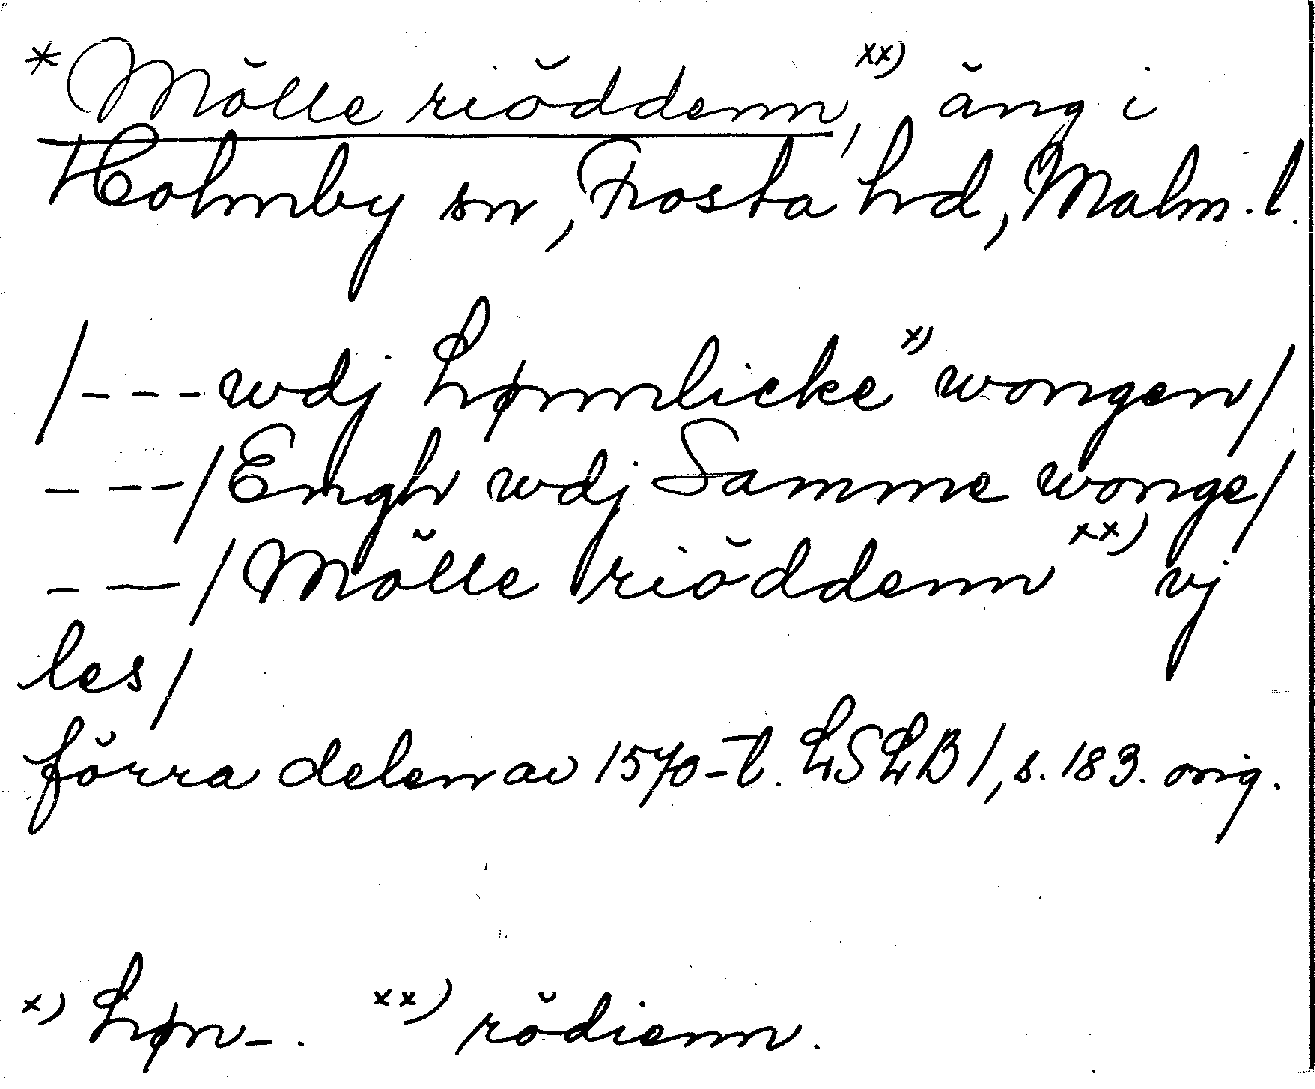 * Mölle riöddenn, xx) äng i
Holmby sn, Frosta hd, Malm. l.
/--- wdj hømlicke x) wongen/
- --/ Emgh wdj Samme wonge/
- --/ Mölle riöddenn xx) vj
les/
förra delen av 1570-t. LSLB 1, s. 183. orig.
x) høn-. xx) rödienn.